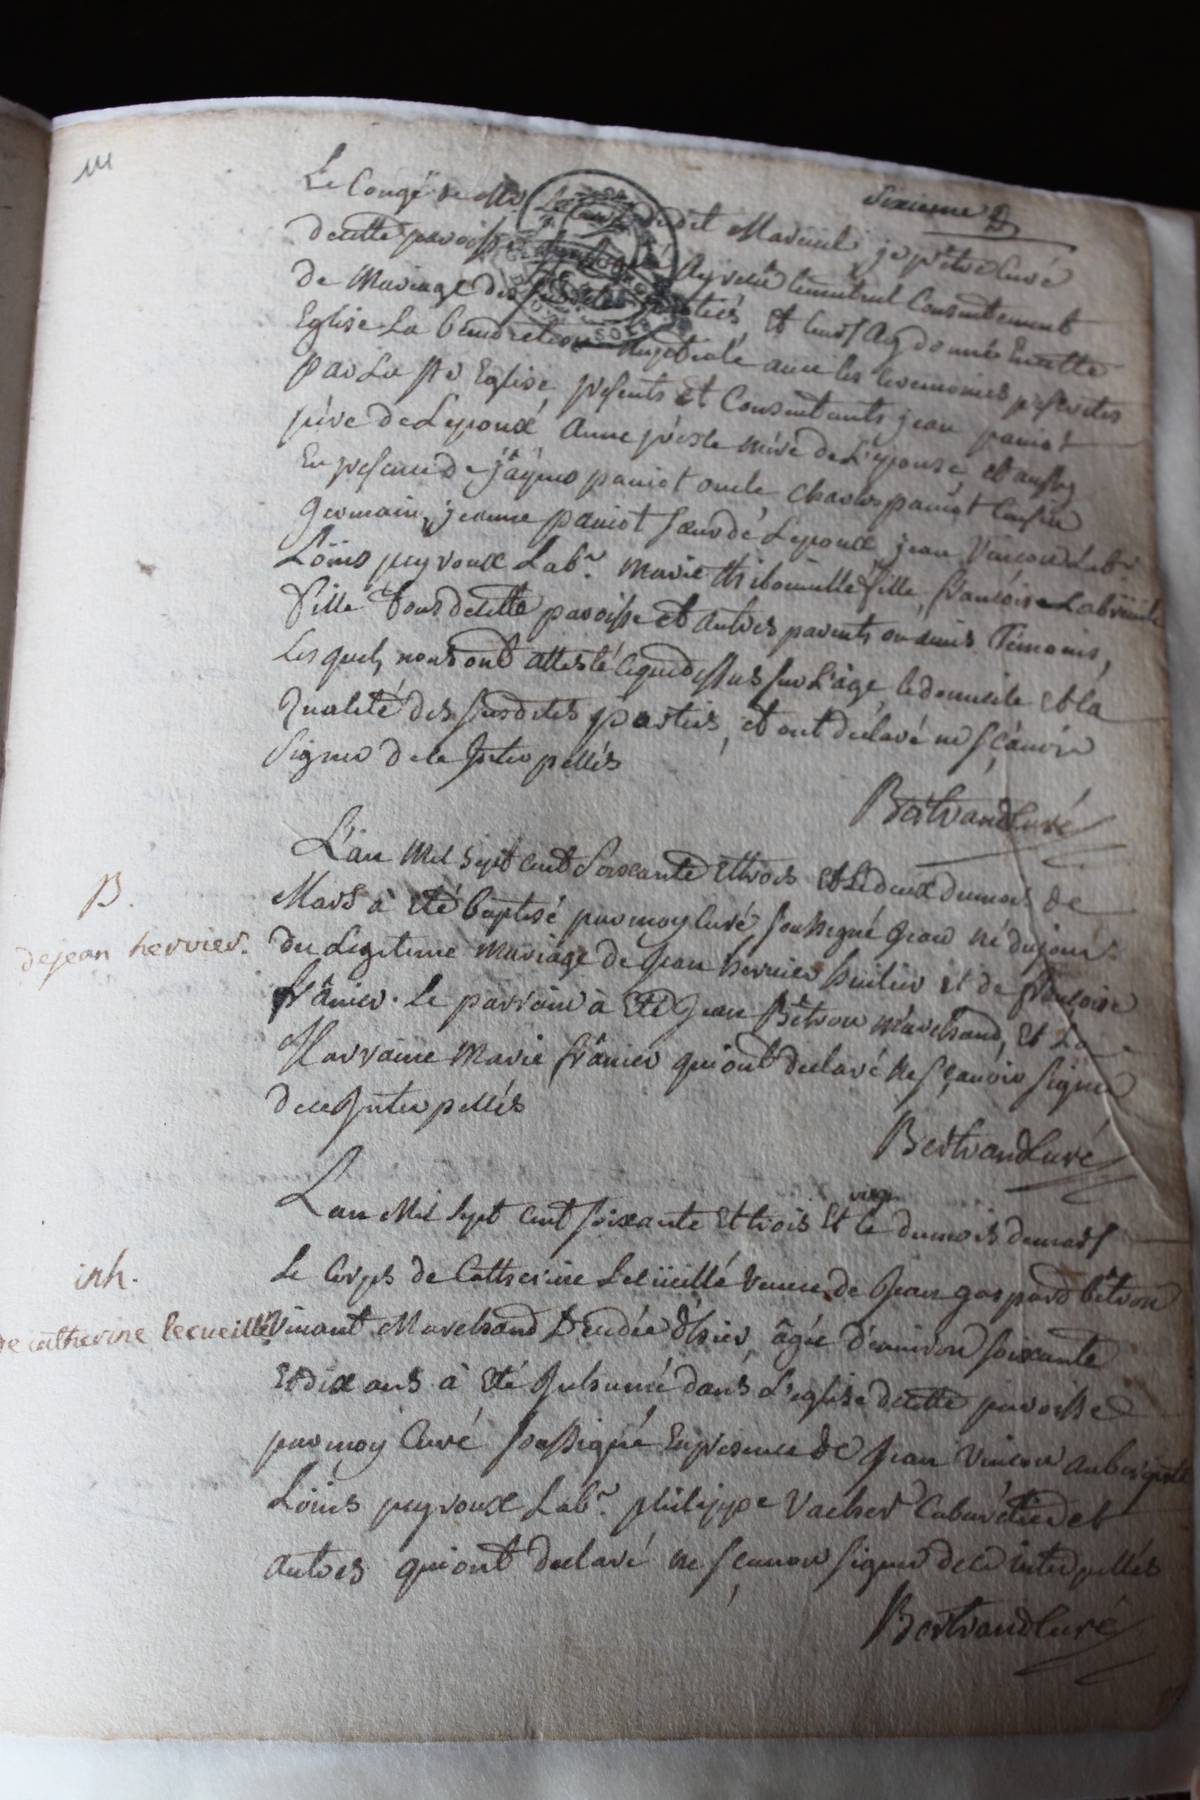 Sixieme
Le Congé de Mr Le Curé dudit Mareuil je ptre Curé
decette paroisse soussigné Ay reçu lemutuel Consentement
de Mariage des susdites parties, et leurs Ay donné Encette
Eglise La benediction Nuptiale avec les Ceremonies prescrites
par La Ste Eglise, présents et Consentants jean pasiot
père de L'epoux Anne mère de L'épouse, et aussy
En presence de jâques pasiot oncle, Charles pasiot Cousin
Germain, jeanne pasiot sœur de L'epoux jean Vincon Labr.
Loüis peyroux Labr. Marie thiboüille fille, françoise
fille Tous decette paroisse et autres parents ou amis Témoins,
Lesquels nous ont attesté cequedessus sur L'âge, le domicile et la
qualité des susdites parties, et ont declaré ne sçavoir
signer de ce Interpellés
Bertrand Curé
B.
de jean hervier.
L'an Mil Sept cent Soixante et trois et Le deux du mois de
Mars à eté baptisé par moy Curé soussigné Jean né du jour
du Legitime mariage de Jean hervier huilier et de françoise
frânier. Le parrain à Eté Jean Bétron Marchand, et La
Marraine Marie frânier qui ont declaré ne sçavoir signer
de ce Interpellés
Bertrand Curé
inh.
de catherine lecueillé
L'an Mil Sept cent soixante et trois et le vingt du mois de mars
Le Corps de Catherine Lecüeillé veuve de Jean gaspard bétron
vivant Marchand Decedée d'hier, âgée d'environ soixante
et dix ans à eté Inhumé dans L'eglise decette paroisse
par moy Curé soussigné En presence de Jean Vincon aubergiste
Loüis peyroux Labr. philippe Vacher Cabarétier et
autres qui ont declaré ne sçavoir signer de ce interpellés
Bertrand Curé